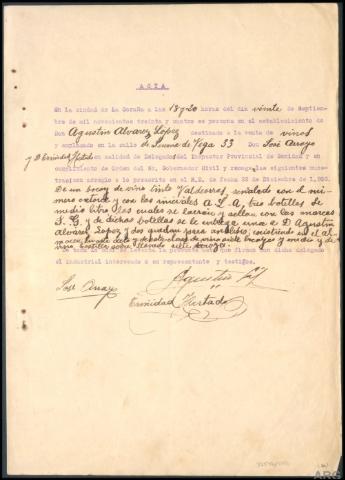 ACTA
En la ciudad de La Coruña a las 18 y 20 horas del día veinte de Septiem-
bre de mil novecientos treinta y cuatro se persona en el establecimiento de
Don Agustín Alvarez López destinado a la venta de vinos
y emplazado en la calle de Juana de Vega 33 Don José Arroyo
y D Trinidad Hurtado en calidad de Delegados del Inspector Provincial de Sanidad y en
cumplimiento de Orden del Sr. Gobernador Civil y recoge las siguientes mues-
tras con arreglo a lo prescrito en el R.D. de fecha 22 de Diciembre de 1.908.
De un bocoy de vino tinto Valdeorras, señalado con el nú-
mero catorce y con las iniciales A L A, tres botellas de
medio litro, las cuales se lacran y sellan con las marcas
S. C. y de dichas botellas se le entrega una a D Agustín
Alvarez Lopez y dos quedan para análisis, existiendo en el al-
macen
de esta acta se levanta la presente que firman con dicho delegado
el industrial interesado o su representante y testigos.
José Arroyo Agustín
Trinidad Hurtado
ARG